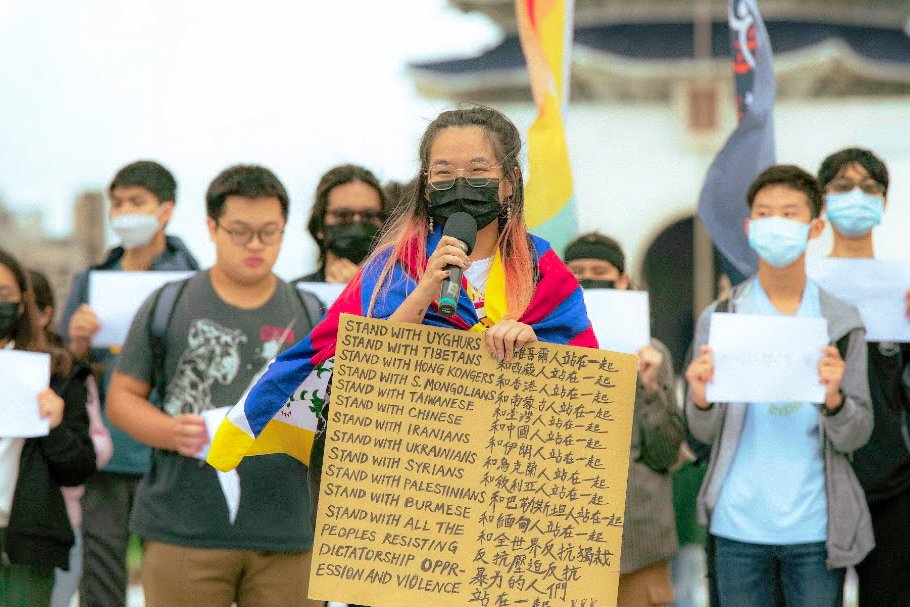 STAND WITH UYGHURS
STAND WITH TIBETANS
STAND WITH HONG KONGERS
STAND WITH S. MONGOLIANS
STAND WITH TAIWANESE
STAND WITH CHINESE
STAND WITH IRANIANS
STAND WITH UKRAINIANS
STAND WITH SYRIANS
STAND WITH PALESTINIANS
STAND WITH BURMESE
STAND WITH ALL THE
PEOPLES RESISTING
DICTATORSHIP OPPR-
ESSION AND VIOLENCE
和維吾爾人站在一起
和西藏人站在一起
和香港人站在一起
和南蒙古人站在一起
和臺灣人站在一起
和中國人站在一起
和伊朗人站在一起
和烏克蘭人站在一起
和敘利亞人站在一起
和巴勒斯坦人站在一起
和緬甸人站在一起
和全世界反抗獨裁
反抗壓迫反抗
暴力的人們
站在一起